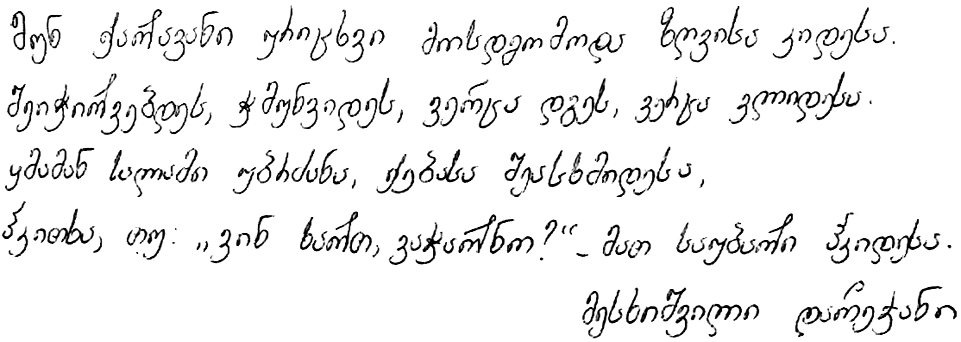 მუნ ქარავანი ურიცხვი მოსდგომოდა ზღვისა კიდესა.
შეიჭირვებდეს, ჭმუნვიდეს, ვერცა დგეს, ვერცა ვლიდესა.
ყმამან სალამი უბრძანა, ქებასა შეასხმიდესა,
ჰკითხა, თუ: „ვინ ხართ, ვაჭარნო?“ – მათ საუბარი ჰკიდესა.
მესხიშვილი დარეჯანი